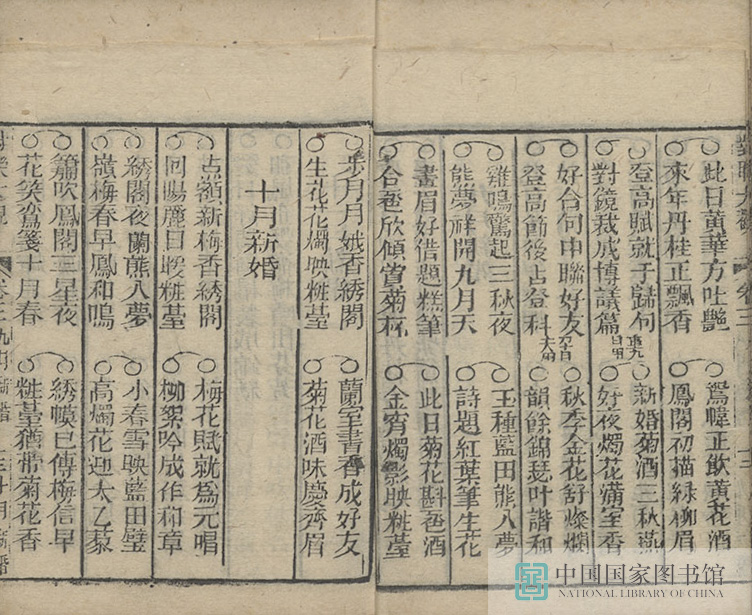 此日黃華方吐艷　鴛幃正飲黃花酒
來年丹桂正飄香　鳳閣初描綠柳眉
登高賦就于歸句重九　新婚菊酒三秋燕
對鏡裁成博議篇日用　好夜燭花滿室香
好合句中聯好友　秋季金花舒燦爛
登高節後占登科　韻餘錦瑟叶諧和
雞鳴驚起三秋夜　玉種藍田熊入夢
能夢祥開九月天　詩題紅葉筆生花
畫眉好借題糕筆　此日菊花斟卺酒
合卺欣傾賞菊杯　金宵燭影映粧臺
步月月娥香綉閣　蘭室書香成好友
生花花燭映粧臺　菊花酒味慶齊眉
十月新婚
点額新梅香綉閣　梅花賦就爲元唱
回陽麗日暖粧臺　柳絮吟成作和章
綉閣夜蘭熊入夢　小春雪映藍田璧
嶺梅春早鳳和鳴　高燭花迎太乙藜
簫吹鳳閣三星夜　綉幙已傳梅信早
花笑鴛箋十月春　粧臺猶帶菊花香
中国国家图书馆
NATIONAL LIBRARY OF CHINA